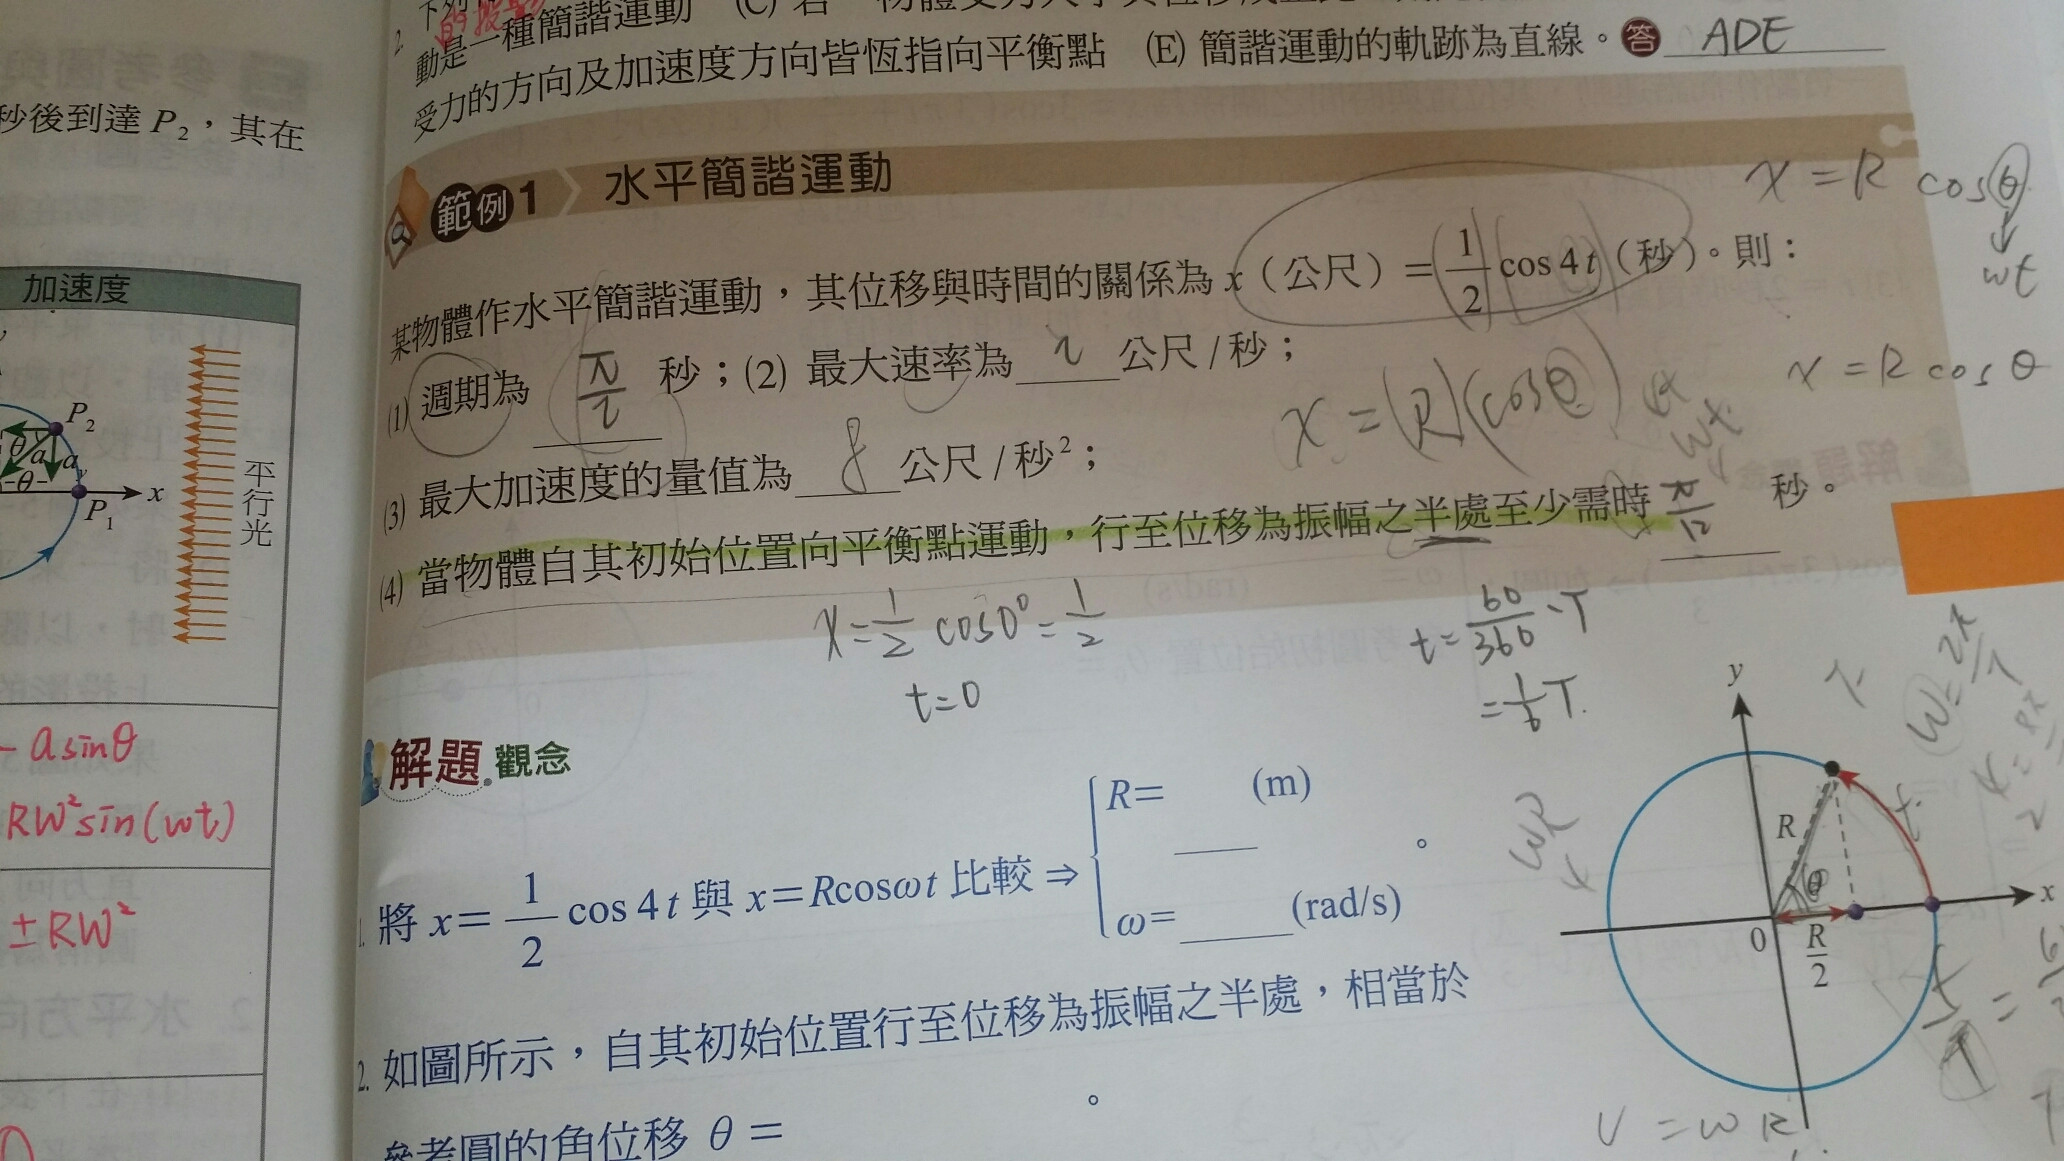 秒後到達 P₂，其在
加速度
P₂
P₁
x
平行光
- asinθ
Rw²sin(wt)
±Rw²
2.
動是一種簡諧運動 (C) 若一物體受力大小與其位移成正比
受力的方向及加速度方向皆恆指向平衡點 (E) 簡諧運動的軌跡為直線。答 ADE
範例1 水平簡諧運動
x = R cosθ
wt
某物體作水平簡諧運動，其位移與時間的關係為 x（公尺）= 1/2 cos 4t（秒）。則：
(1) 週期為 π/2 秒；(2) 最大速率為 2 公尺/秒；
x = R cosθ
x = (R)(cosθ)
wt
(3) 最大加速度的量值為 8 公尺/秒²；
(4) 當物體自其初始位置向平衡點運動，行至位移為振幅之半處至少需時 π/12 秒。
x = 1/2 cos0° = 1/2
t=0
t = 60/360 · T
= 1/6 T
解題 觀念
1. 將 x= 1/2 cos 4t 與 x=Rcosωt 比較 ⇒ { R= ____ (m)
ω= ____ (rad/s) 。
2. 如圖所示，自其初始位置行至位移為振幅之半處，相當於
參考圓的角位移 θ = 。
y
x
R
θ
0
R/2
t
wR
w = 2π/T
v = wR